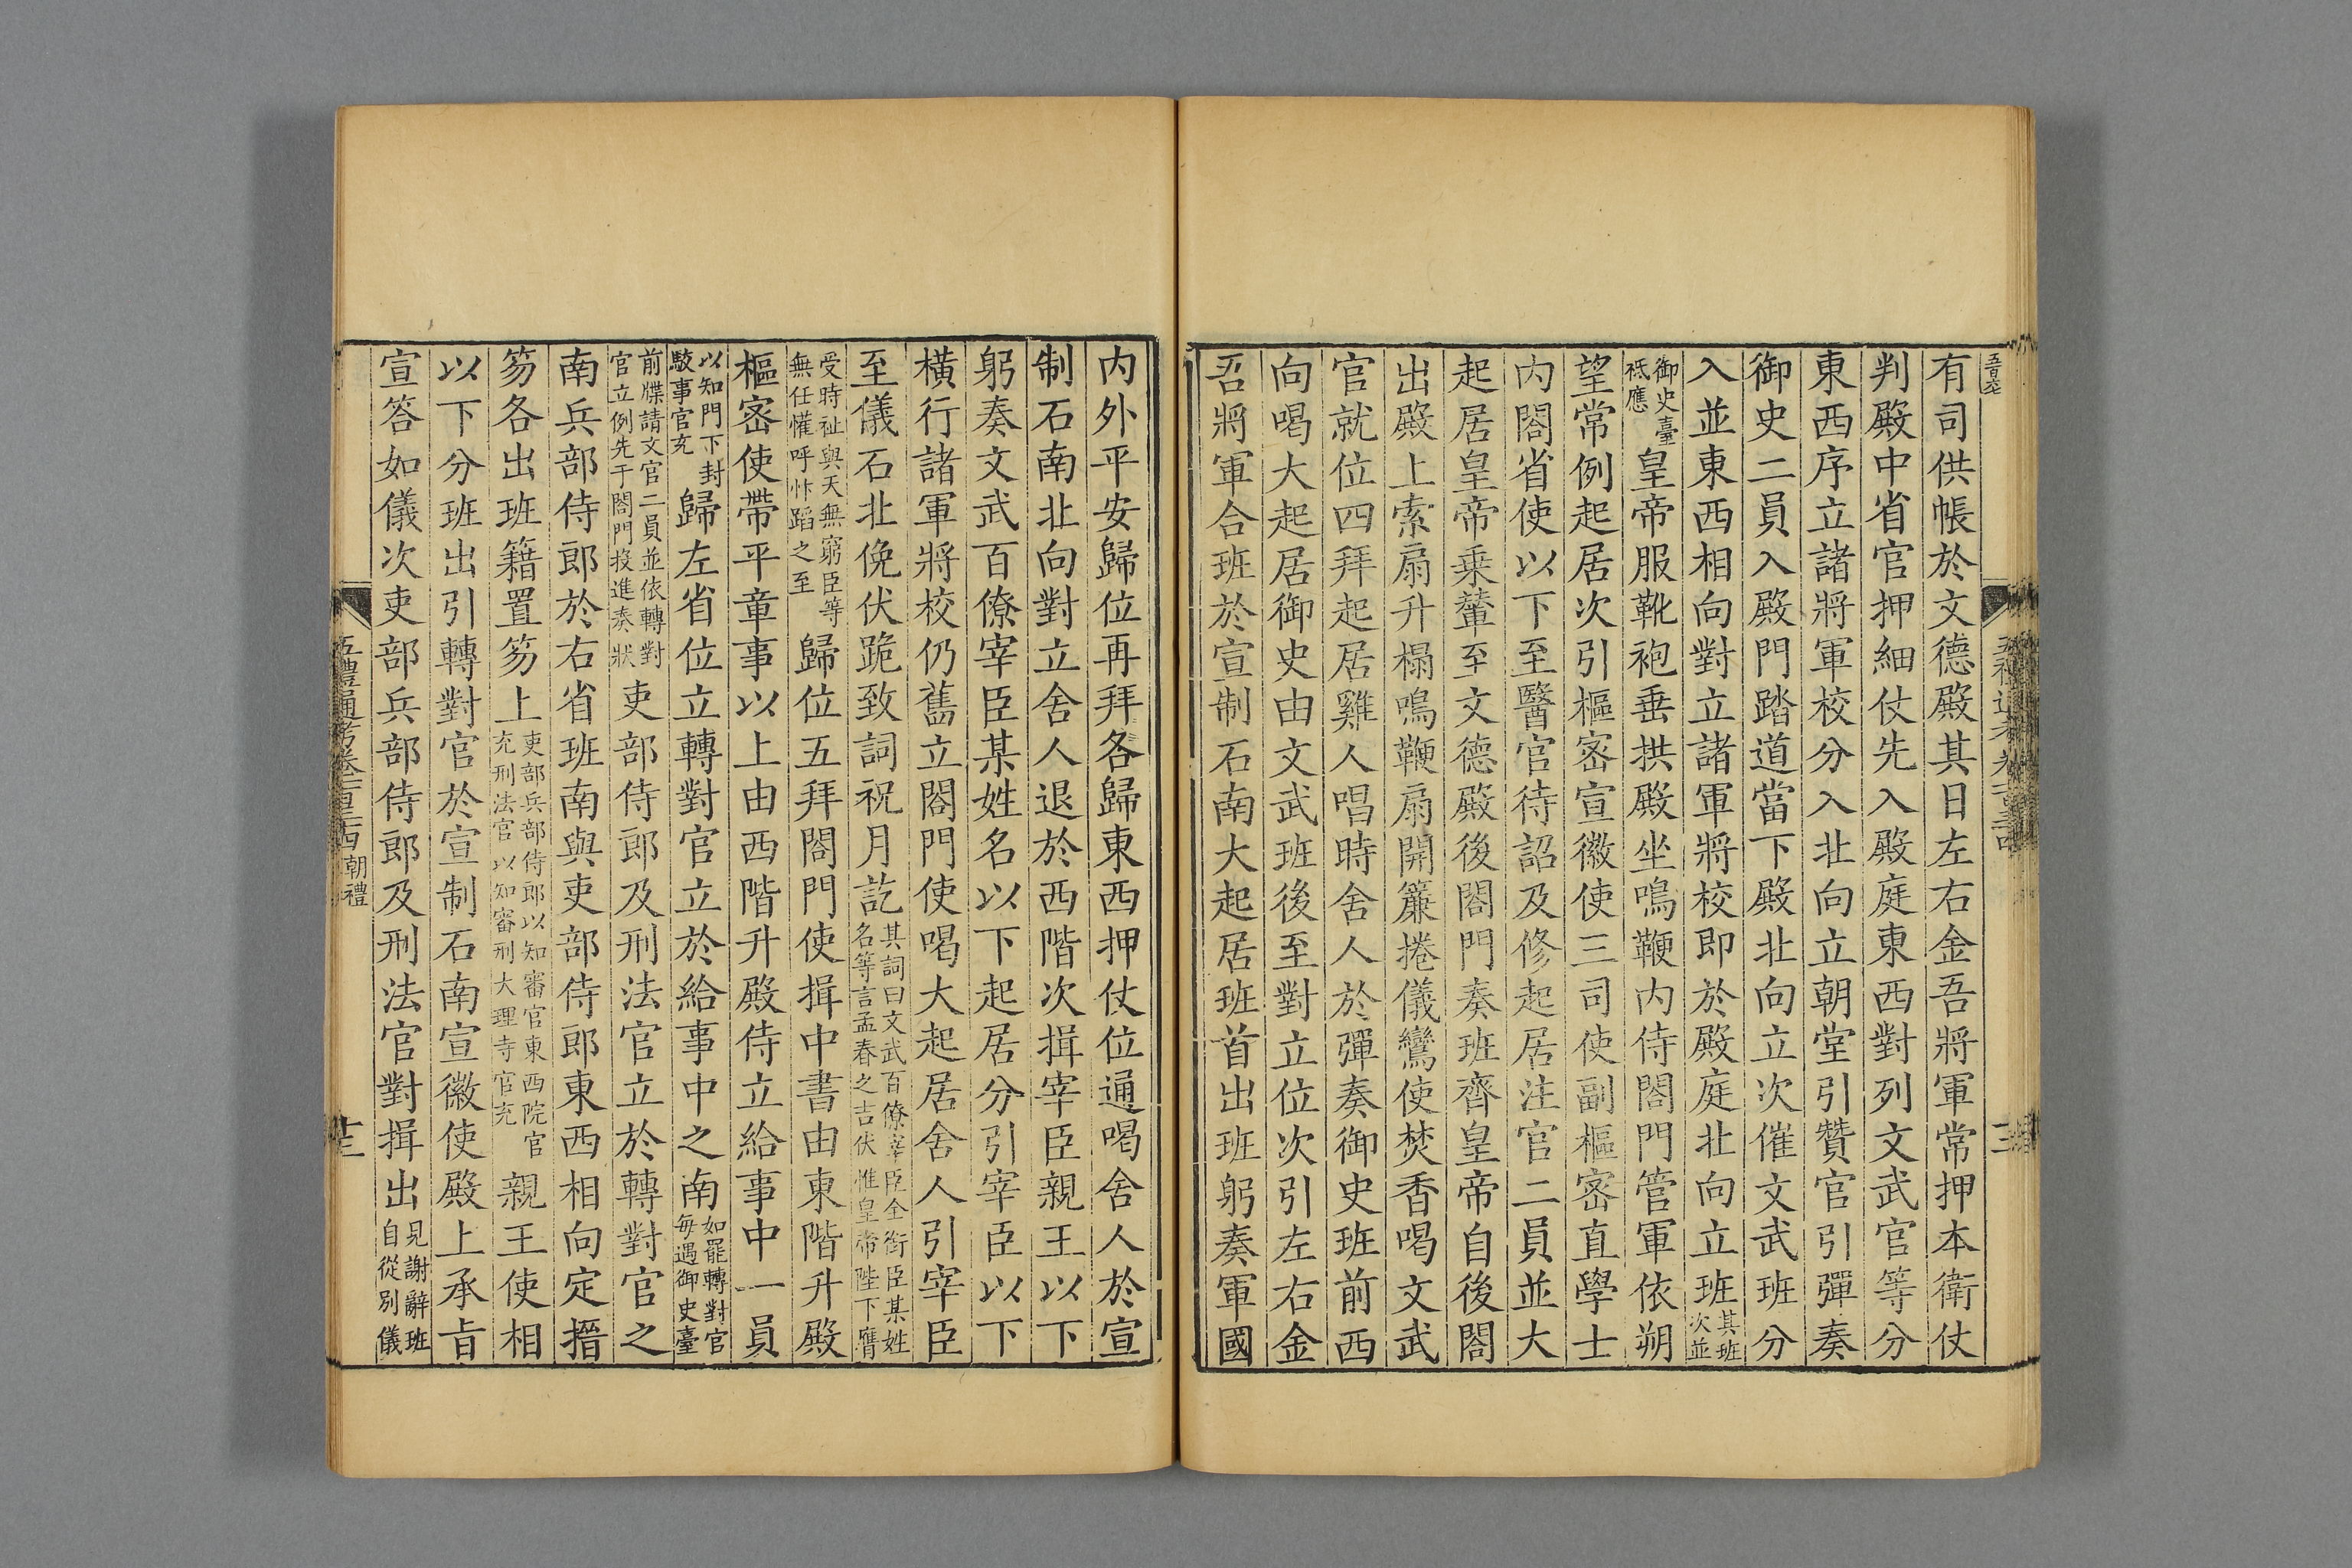 有司供帳於文德殿其日左右金吾將軍常押本衛仗
判殿中省官押細仗先入殿庭東西對列文武官等分
東西序立諸將軍校分入北向立朝堂引贊官引彈奏
御史二員入殿門踏道當下殿北向立次催文武班分
入並東西相向對立諸軍將校即於殿庭北向立班其班次並
御史臺祗應皇帝服靴袍垂拱殿坐鳴鞭內侍閤門管軍依朔
望常例起居次引樞密宣徽使三司使副樞密直學士
內閤省使以下至醫官待詔及修起居注官二員並大
起居皇帝乘輦至文德殿後閤門奏班齊皇帝自後閤
出殿上索扇升榻鳴鞭扇開簾捲儀鸞使焚香喝文武
官就位四拜起居雞人唱時舍人於彈奏御史班前西
向喝大起居御史由文武班後至對立位次引左右金
吾將軍合班於宣制石南大起居班首出班躬奏軍國
內外平安歸位再拜各歸東西押仗位通喝舍人於宣
制石南北向對立舍人退於西階次揖宰臣親王以下
躬奏文武百僚宰臣某姓名以下起居分引宰臣以下
橫行諸軍將校仍舊立閤門使喝大起居舍人引宰臣
至儀石北俛伏跪致詞祝月訖其詞曰文武百僚宰臣全銜臣某姓名等言孟春之吉伏惟皇帝陛下膺
受時祉與天無窮臣等無任懽呼忭蹈之至歸位五拜閤門使揖中書由東階升殿
樞密使帶平章事以上由西階升殿侍立給事中一員
以知門下封駮事官充歸左省位立轉對官立於給事中之南如罷轉對官每遇御史臺
前牒請文官二員並依轉對官立例先于閤門投進奏狀吏部侍郎及刑法官立於轉對官之
南兵部侍郎於右省班南與吏部侍郎東西相向定搢
笏各出班籍置笏上吏部兵部侍郎以知審官東西院官充刑法官以知審刑大理寺官充親王使相
以下分班出引轉對官於宣制石南宣徽使殿上承旨
宣答如儀次吏部兵部侍郎及刑法官對揖出見謝辭班自從別儀
五禮通考卷一百三十四 朝禮